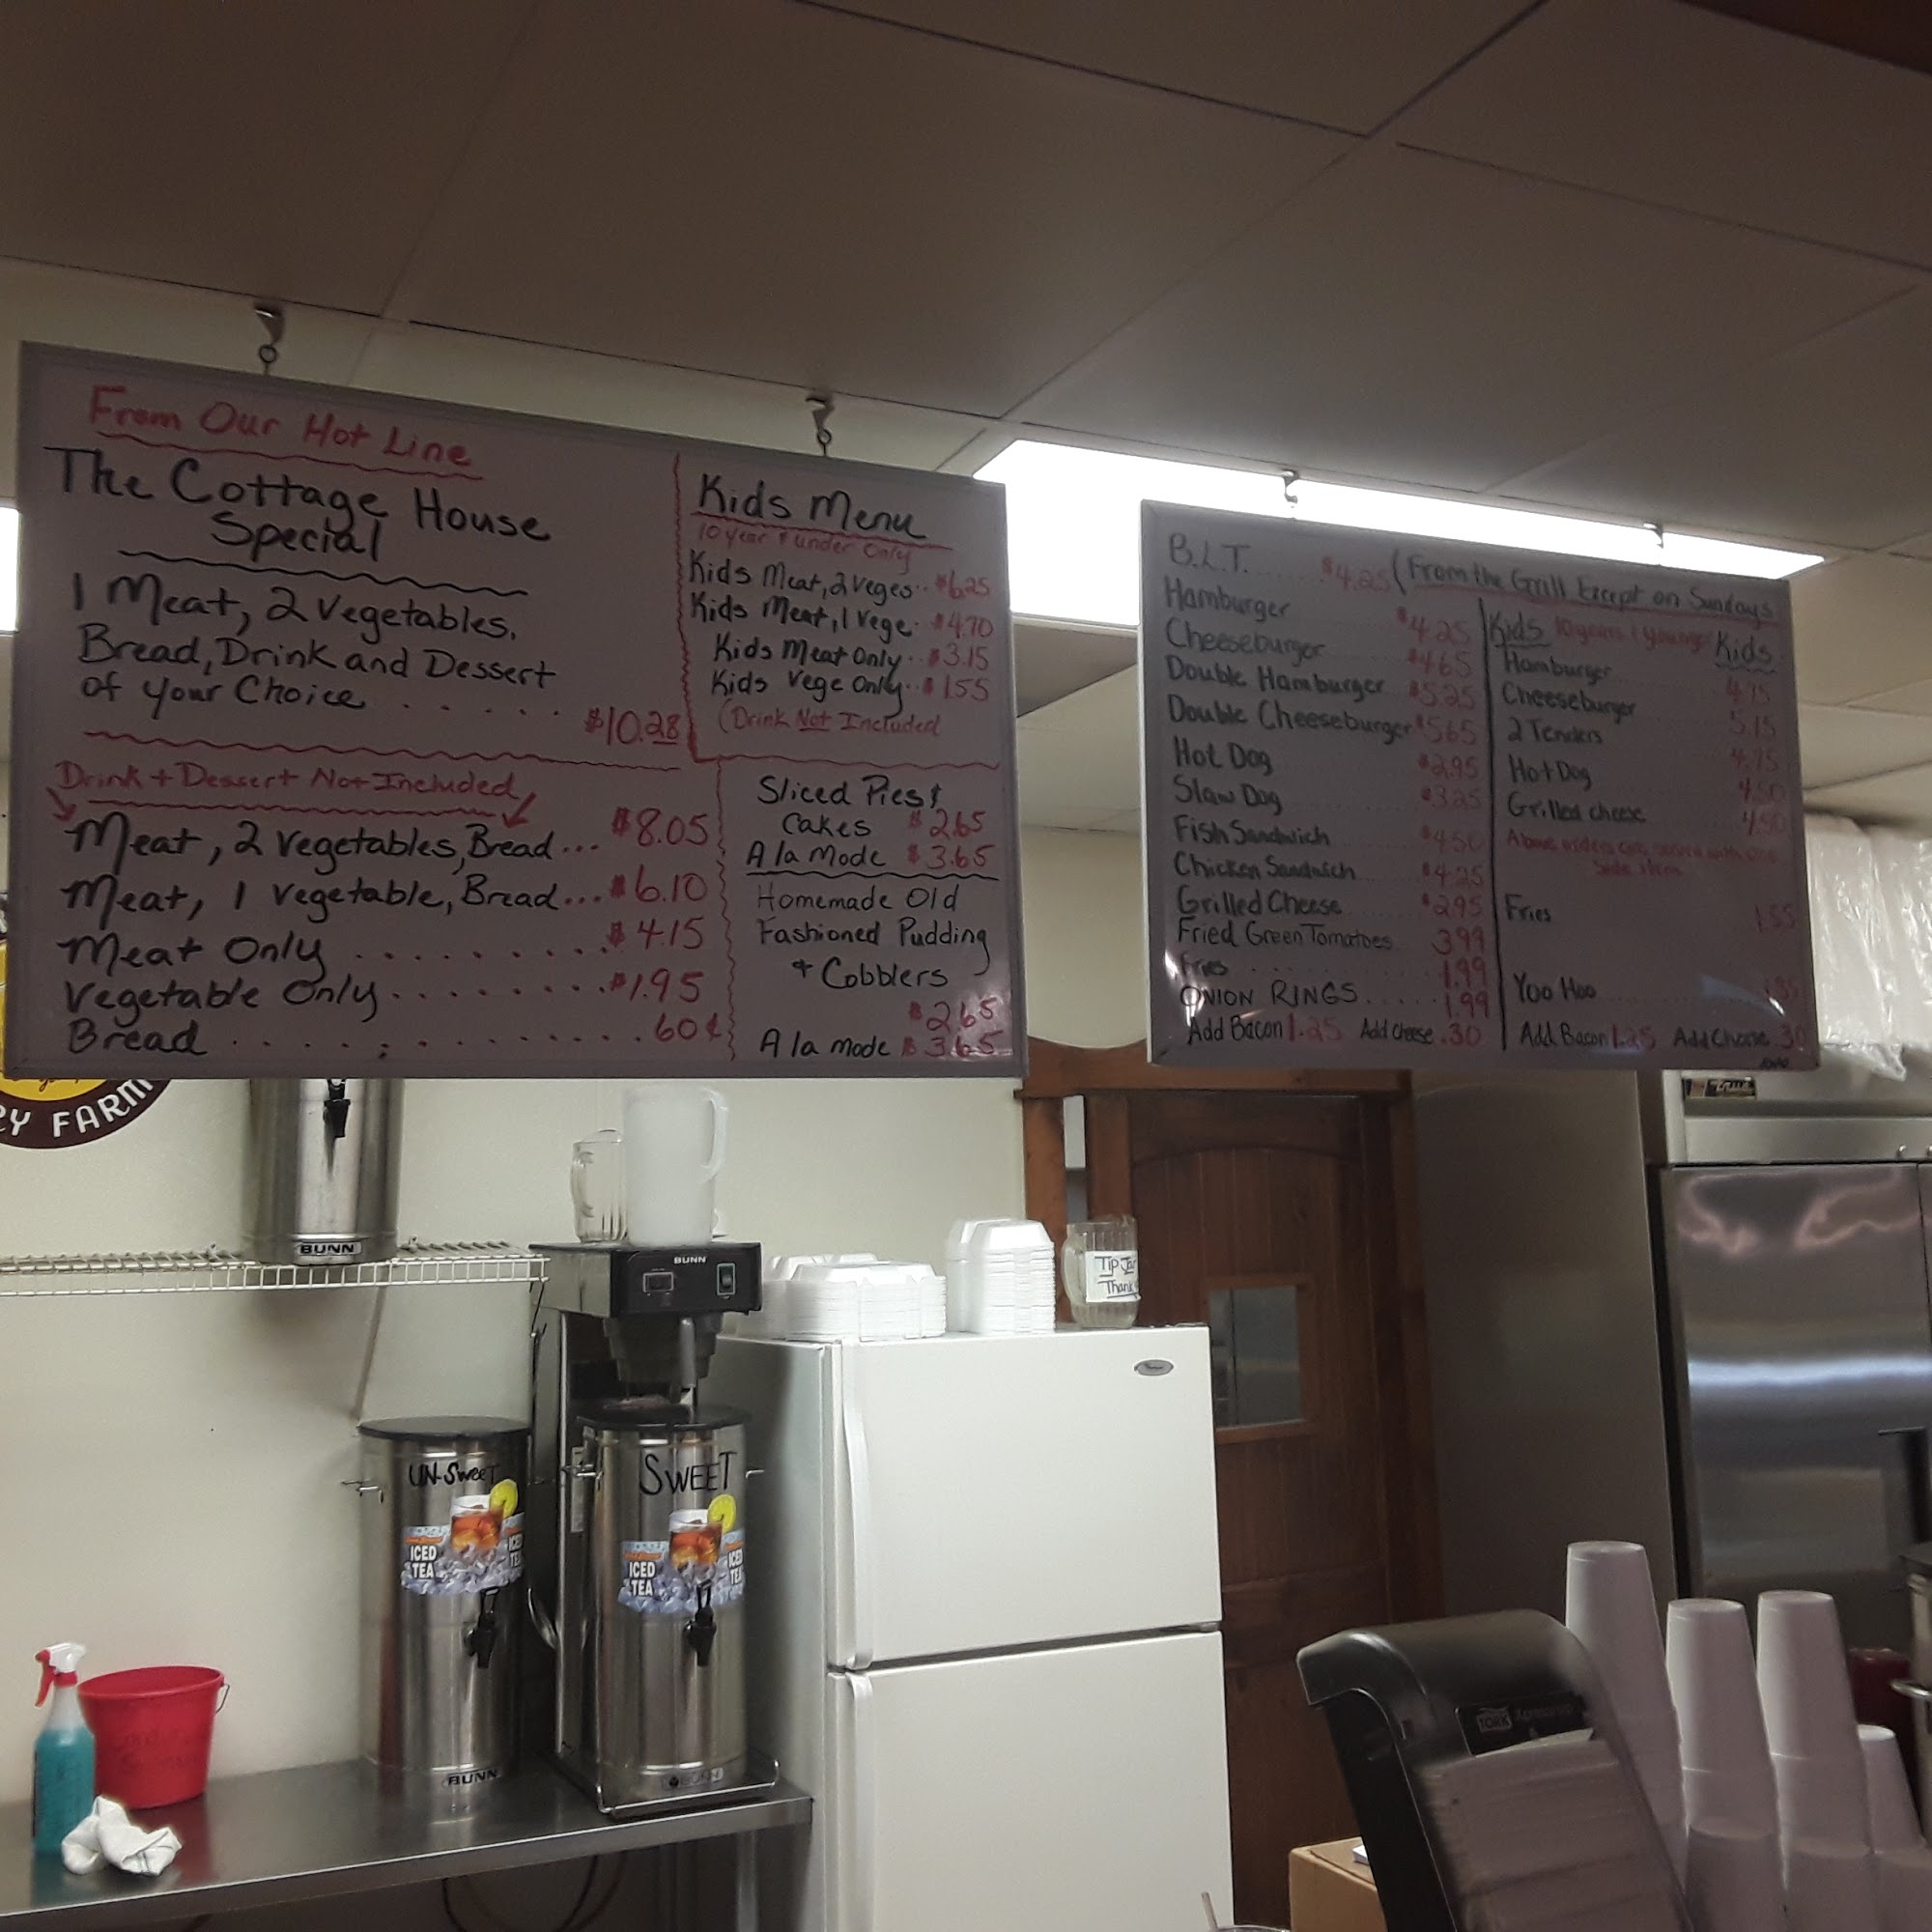 From Our Hot Line
The Cottage House
Special
1 Meat, 2 Vegetables,
Bread, Drink and Dessert
of your Choice . . . . . .
$10.28
Drink + Dessert Not Included
Meat, 2 vegetables, Bread... $8.05
Meat, 1 vegetable, Bread... $6.10
Meat Only . . . . . . . . . $4.15
Vegetable Only . . . . . . . . $1.95
Bread . . . . . . . . . . . . . 60¢
Kids Menu
10 year & under Only
Kids Meat, 2 Veges.. $6.25
Kids Meat, 1 Vege. $4.70
Kids Meat Only.. $3.15
Kids Vege Only.. $1.55
(Drink Not Included
Sliced Pies &
Cakes $2.65
A la mode $3.65
Homemade Old
Fashioned Pudding
+ Cobblers
$2.65
A la mode $3.65
B.L.T. ....... $4.25 (From the Grill Except on Sundays
Hamburger $4.25
Cheeseburger $4.65
Double Hamburger $5.25
Double Cheeseburger $5.65
Hot Dog $2.95
Slaw Dog $3.25
Fish Sandwich $4.50
Chicken Sandwich $4.25
Grilled Cheese $2.95
Fried Green Tomatoes 3.99
Fries 1.99
ONION RINGS..... 1.99
Add Bacon 1.25 Add cheese .30
Kids 10 years & younger Kids
Hamburger 4.75
Cheeseburger 5.15
2 Tenders 4.75
Hot Dog 4.50
Grilled cheese 4.50
Above orders are served with one
side item
Fries 1.55
Yoo Hoo
Add Bacon 1.25 Add Cheese .30
RY FARM
BUNN
BUNN
Tip Jar
Thank
UN-Sweet
ICED
TEA
ICED
TE
BUNN
SWEET
ICED
TEA
ICED
TEA
BUNN
TORK Xpressnap